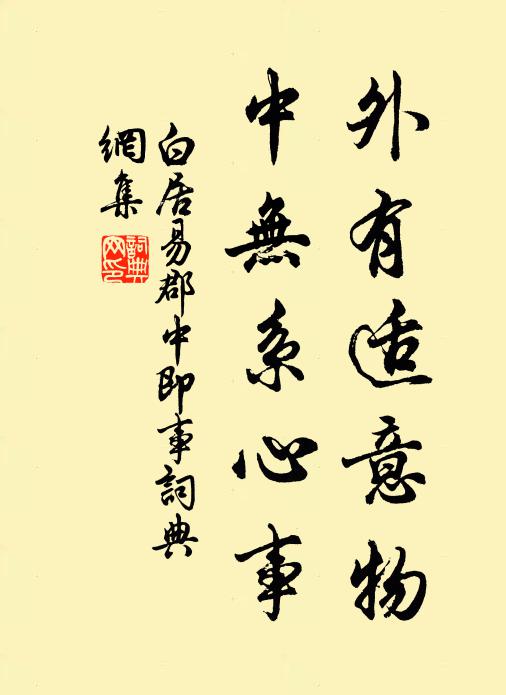 外有适意物
中無系心事
白居易郡中即事詞典
網集
詞典网印